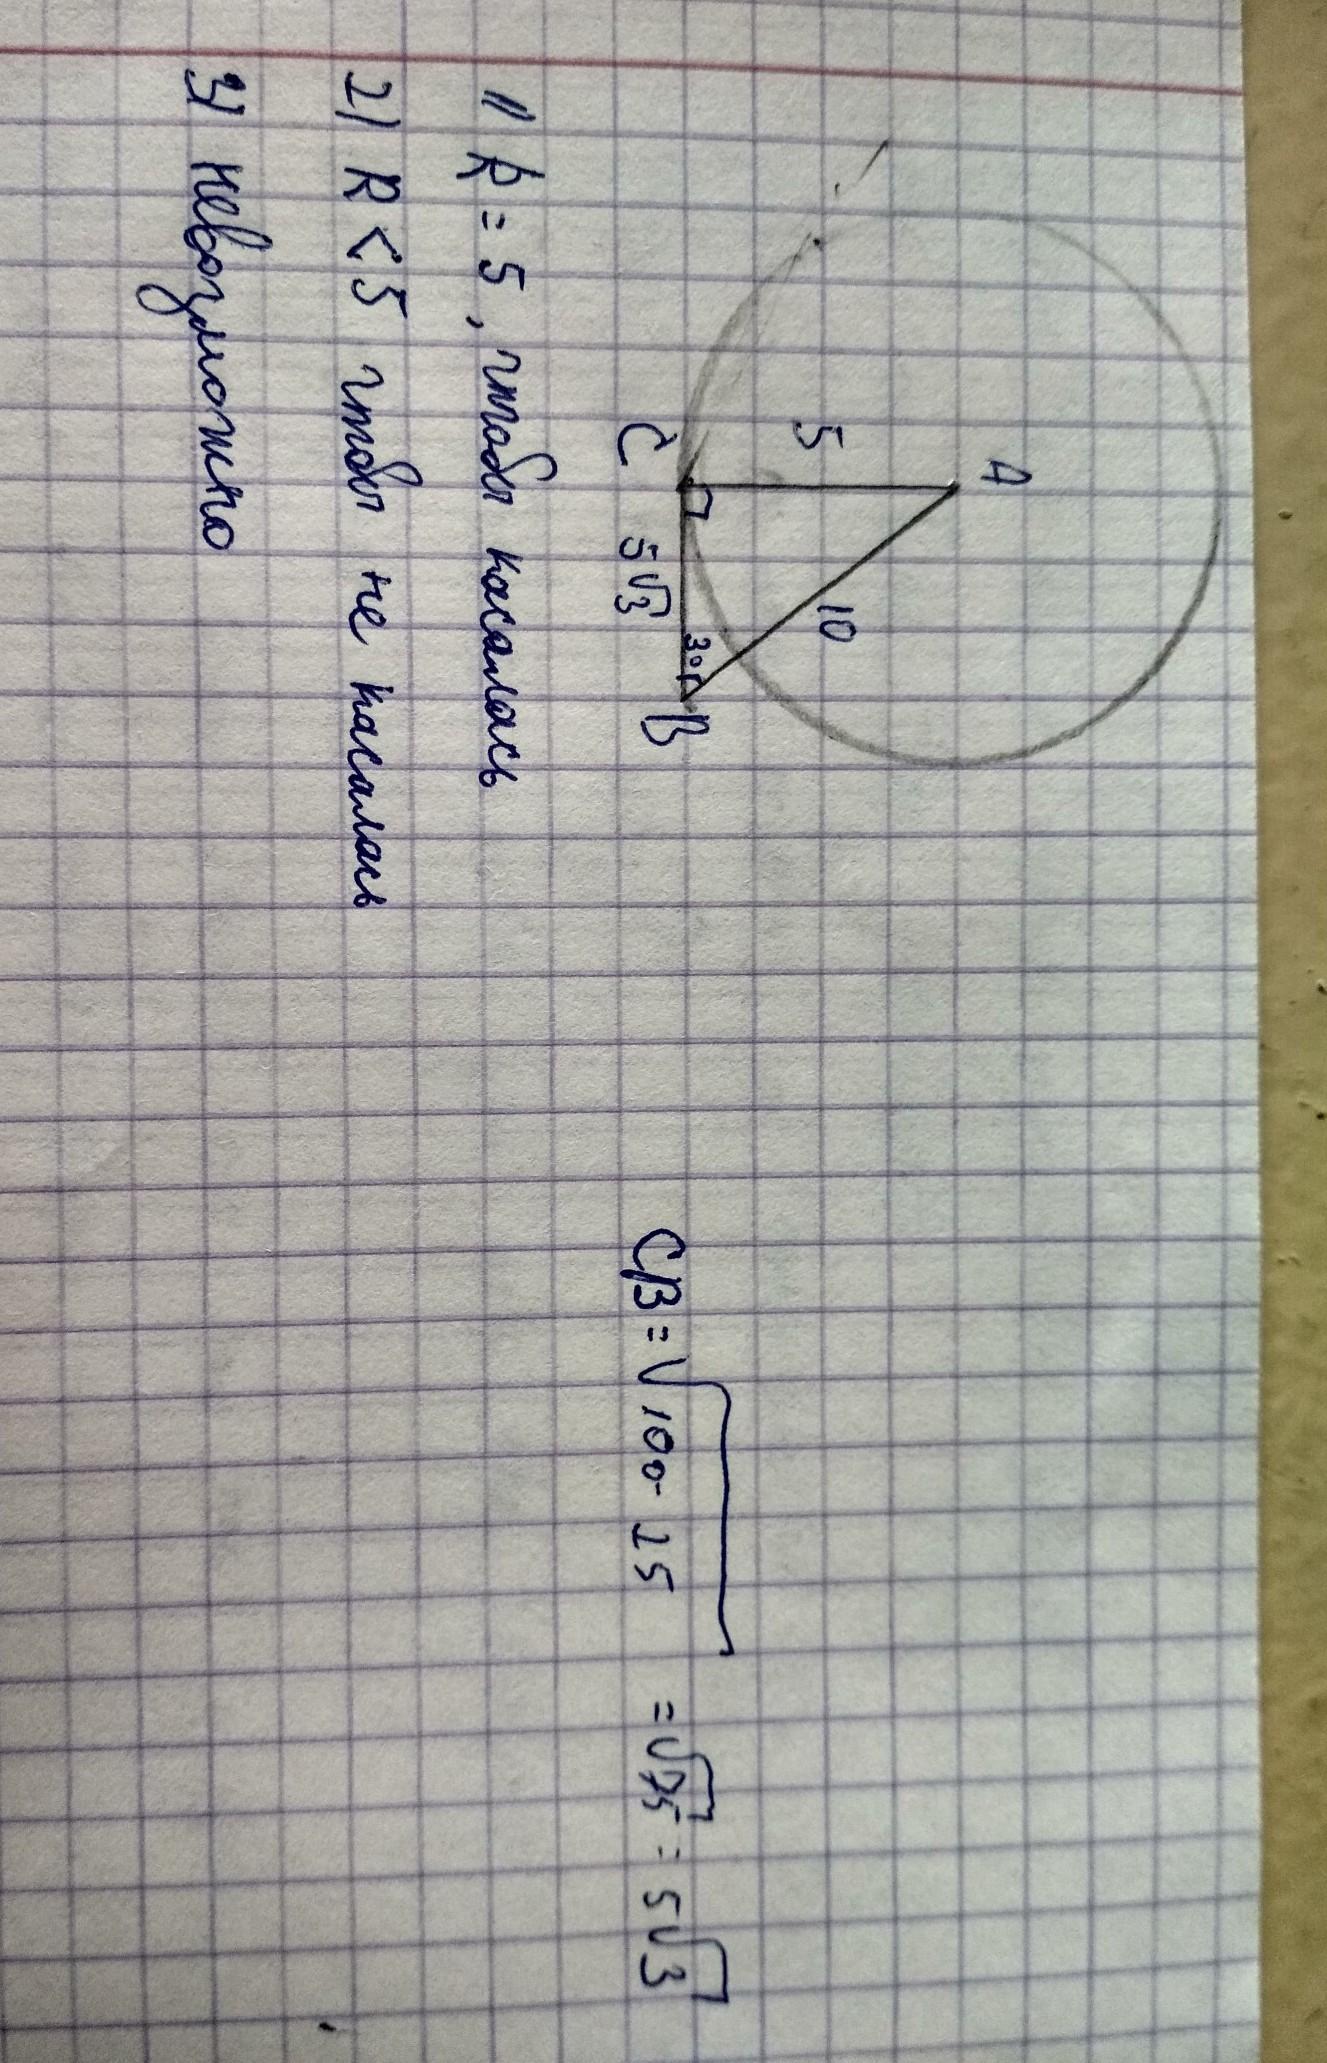 A
5
10
C
5√3
30°
B
CB = √100-25 = √75 = 5√3
1) R = 5, чтобы касалась
2) R < 5 чтобы не касалась
3) невозможно